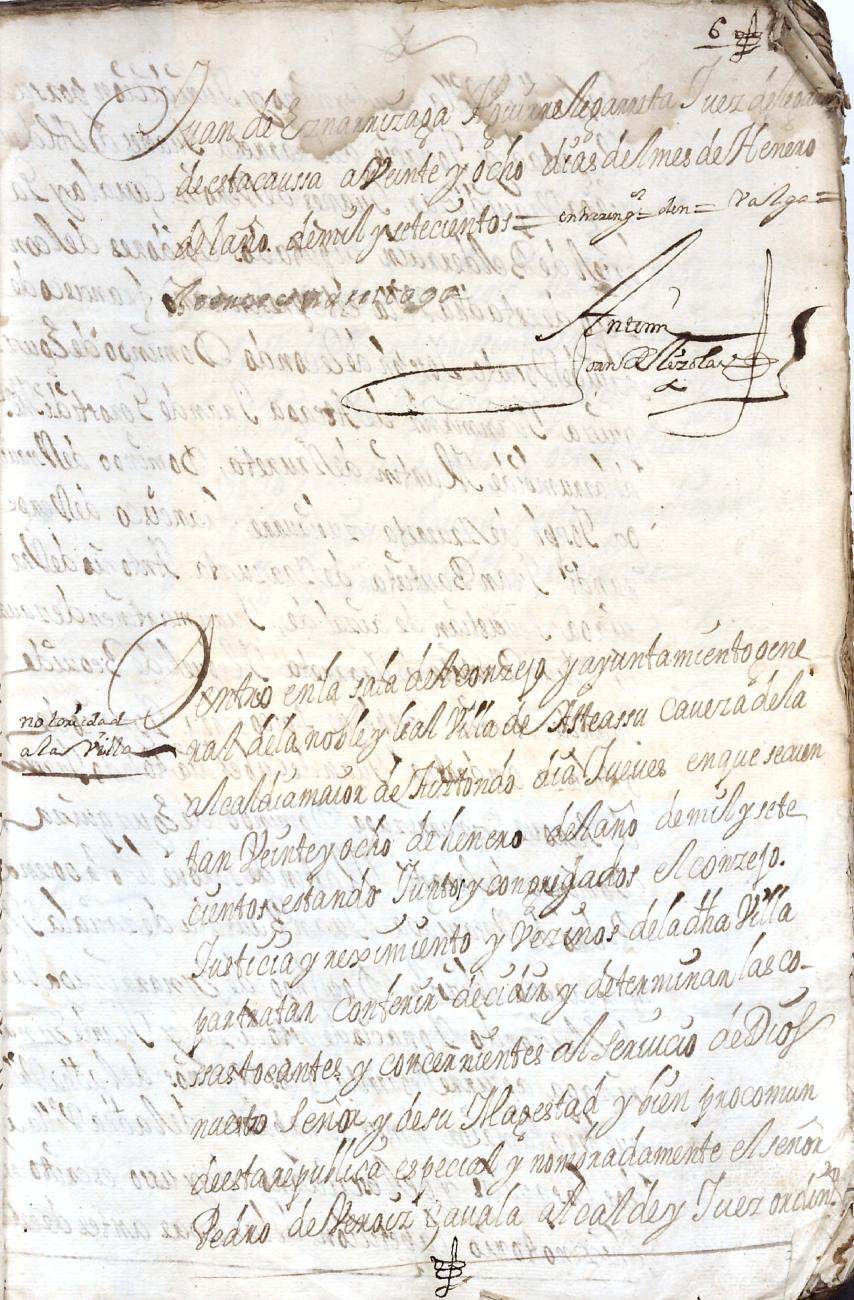 6
Juan de Eznarrizaga Aguirre legarreta Juez delegado
de esta caussa a Veinte y ocho dias del mes de Henero
del año de mil y setecientos = entrering.s = den = Valga =
Antemi
Joan de
Dentro en la sala del Conzejo y ayuntamiento gene
ral de la noble y leal Villa de Asteassu cavezera de la
notoriedad
a la Villa
alcaldia maior de Aiztondo dia Jueves en que se cuen
tan Veinte y ocho de henero del año de mil y sete
cientos estando Juntos y congregados el conzejo.
Justicia y reximiento y Vezinos de la dha Villa
par tratar conferir decidir y determinar las co-
ssas tocantes y concernientes al servicio de Dios
nuestro Señor y de su Magestad y bien procomun
de esta republica especial y nombradamente el señor
Pedro de Zavala alcalde y Juez ordin.o